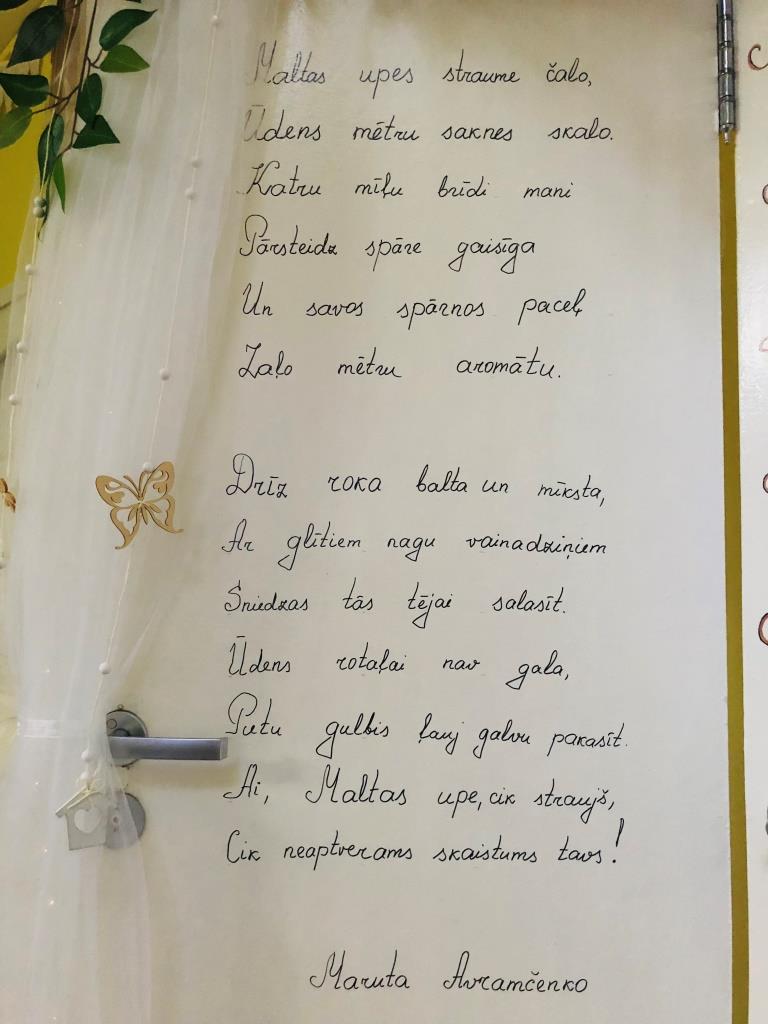 Maltas upes straume čalo,
Ūdens mētru saknes skalo.
Katru mīļu brīdi mani
Pārsteidz spāre gaisīga
Un savos spārnos paceļ
Zaļo mētru aromātu.
Drīz roka balta un mīksta,
Ar glītiem nagu vainadziņiem
Sniedzas tās tējai salasīt.
Ūdens rotaļai nav gala,
Putu gulbis ļauj galvu pakasīt.
Ai, Maltas upe, cik straujš,
Cik neaptverams skaistums tavs!
Maruta Avramčenko